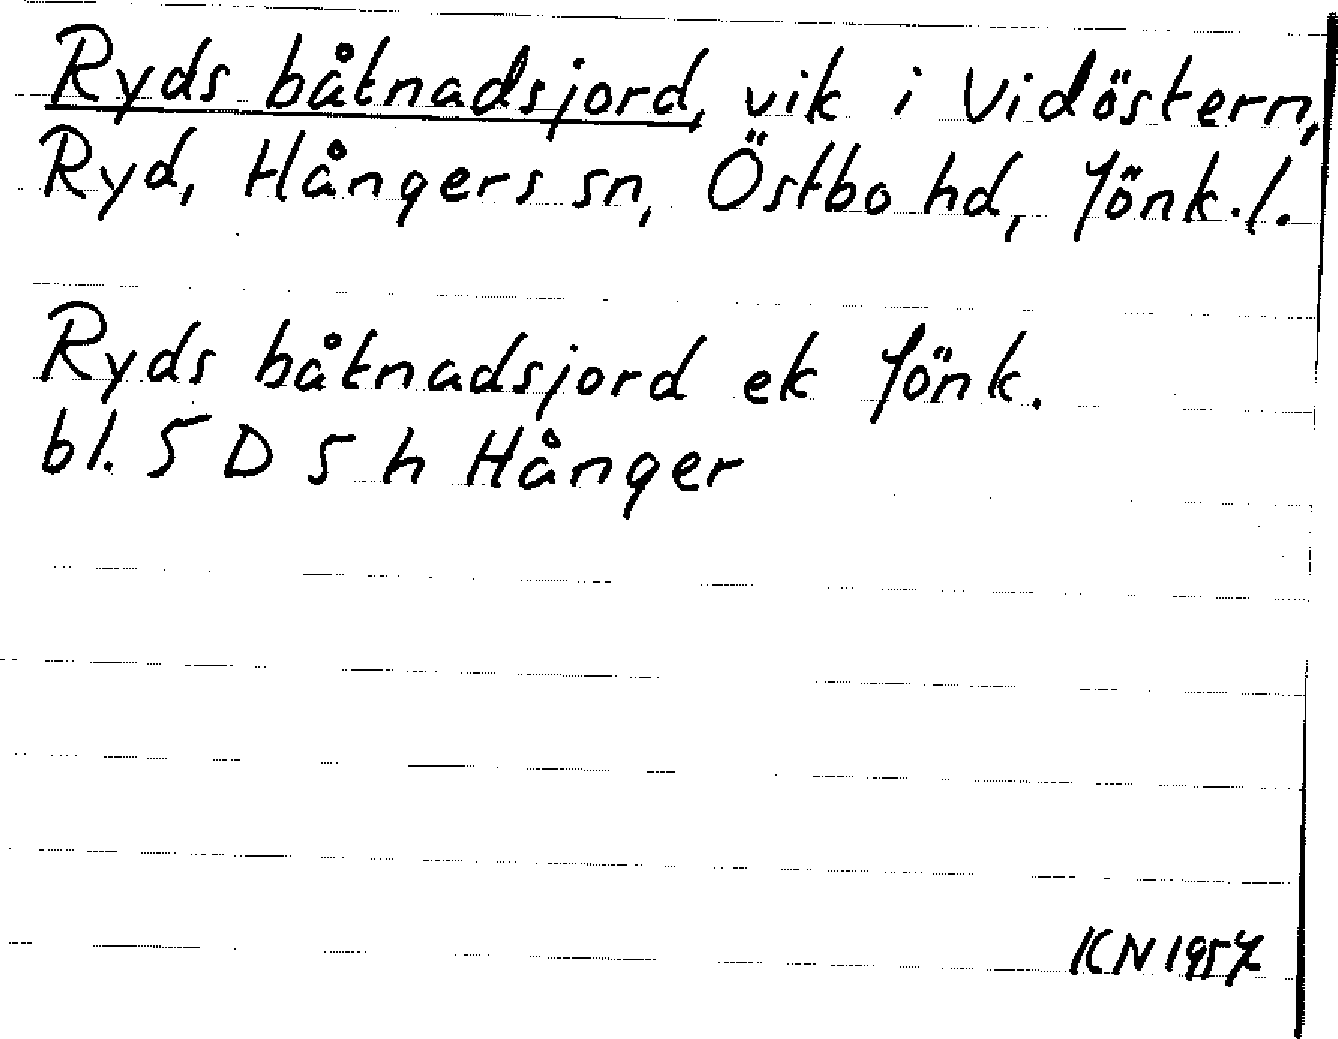 Ryds båtnadsjord, vik i Vidöstern,
Ryd, Hångers sn, Östbo hd, Jönk. l.
Ryds båtnadsjord ek Jönk.
bl. 5 D 5 h Hånger
KN 1957